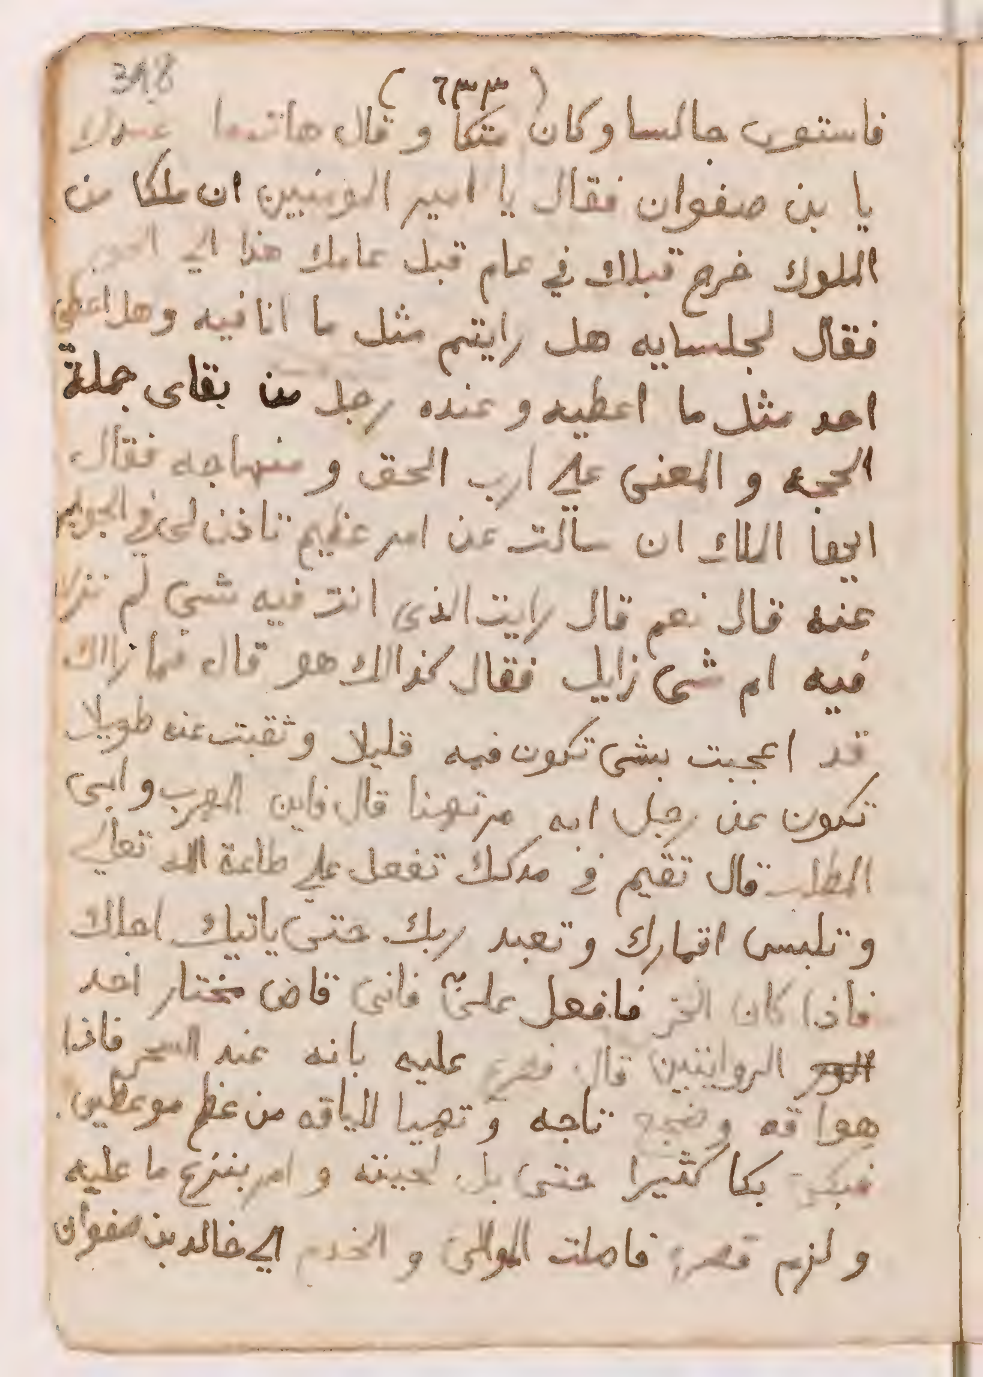 398
( ٦٣٣ )
فاستوى جالسا وكان متكا و قال هات ما عندك
يا بن صفوان فقال يا امير المومنيين ان ملكا من
الملوك خرج قبلك في عام قبل عامك هذا الي
فقال لجلسايه هل رايتم مثل ما انا فيه و هل اعطي
احد مثل ما اعطيه و عنده رجل من بقاى جملة
الحجه و المعنى علي ارب الحق و منهاجه فقال
ايحفا الملك ان سالت عن امر عظيم تاذن لي في الجواب
عنه قال نعم قال رايت الذى انت فيه شي لم تزل
فيه ام شى زايل فقال كذالك هو قال فما راك
قد اعجبت بشى تكون فيه قليلا و ثقبت عنه طويلا
تكون عن رجل ابه مرتهنا قال فاين الهرب و ايى
المطلب قال تقيم في مدكك تفعل علي طاعة الله تعالي
و تلبس اقمارك و تعبد ربك حتى ياتيك اجلك
فاذا كان فافعل علىّ فانى قاض مختار احد
الروايتيين قال عليه بانه عند السحر فاذا
هوا قه و ضجع تاجه و تهيا للياقه من عظم موعظين
فبكى بكا كثيرا حتى بل لحيته و امر بنزع ما عليه
و لزم قصره فاصلت الموالى و الخدم الي خالد بن صفوان